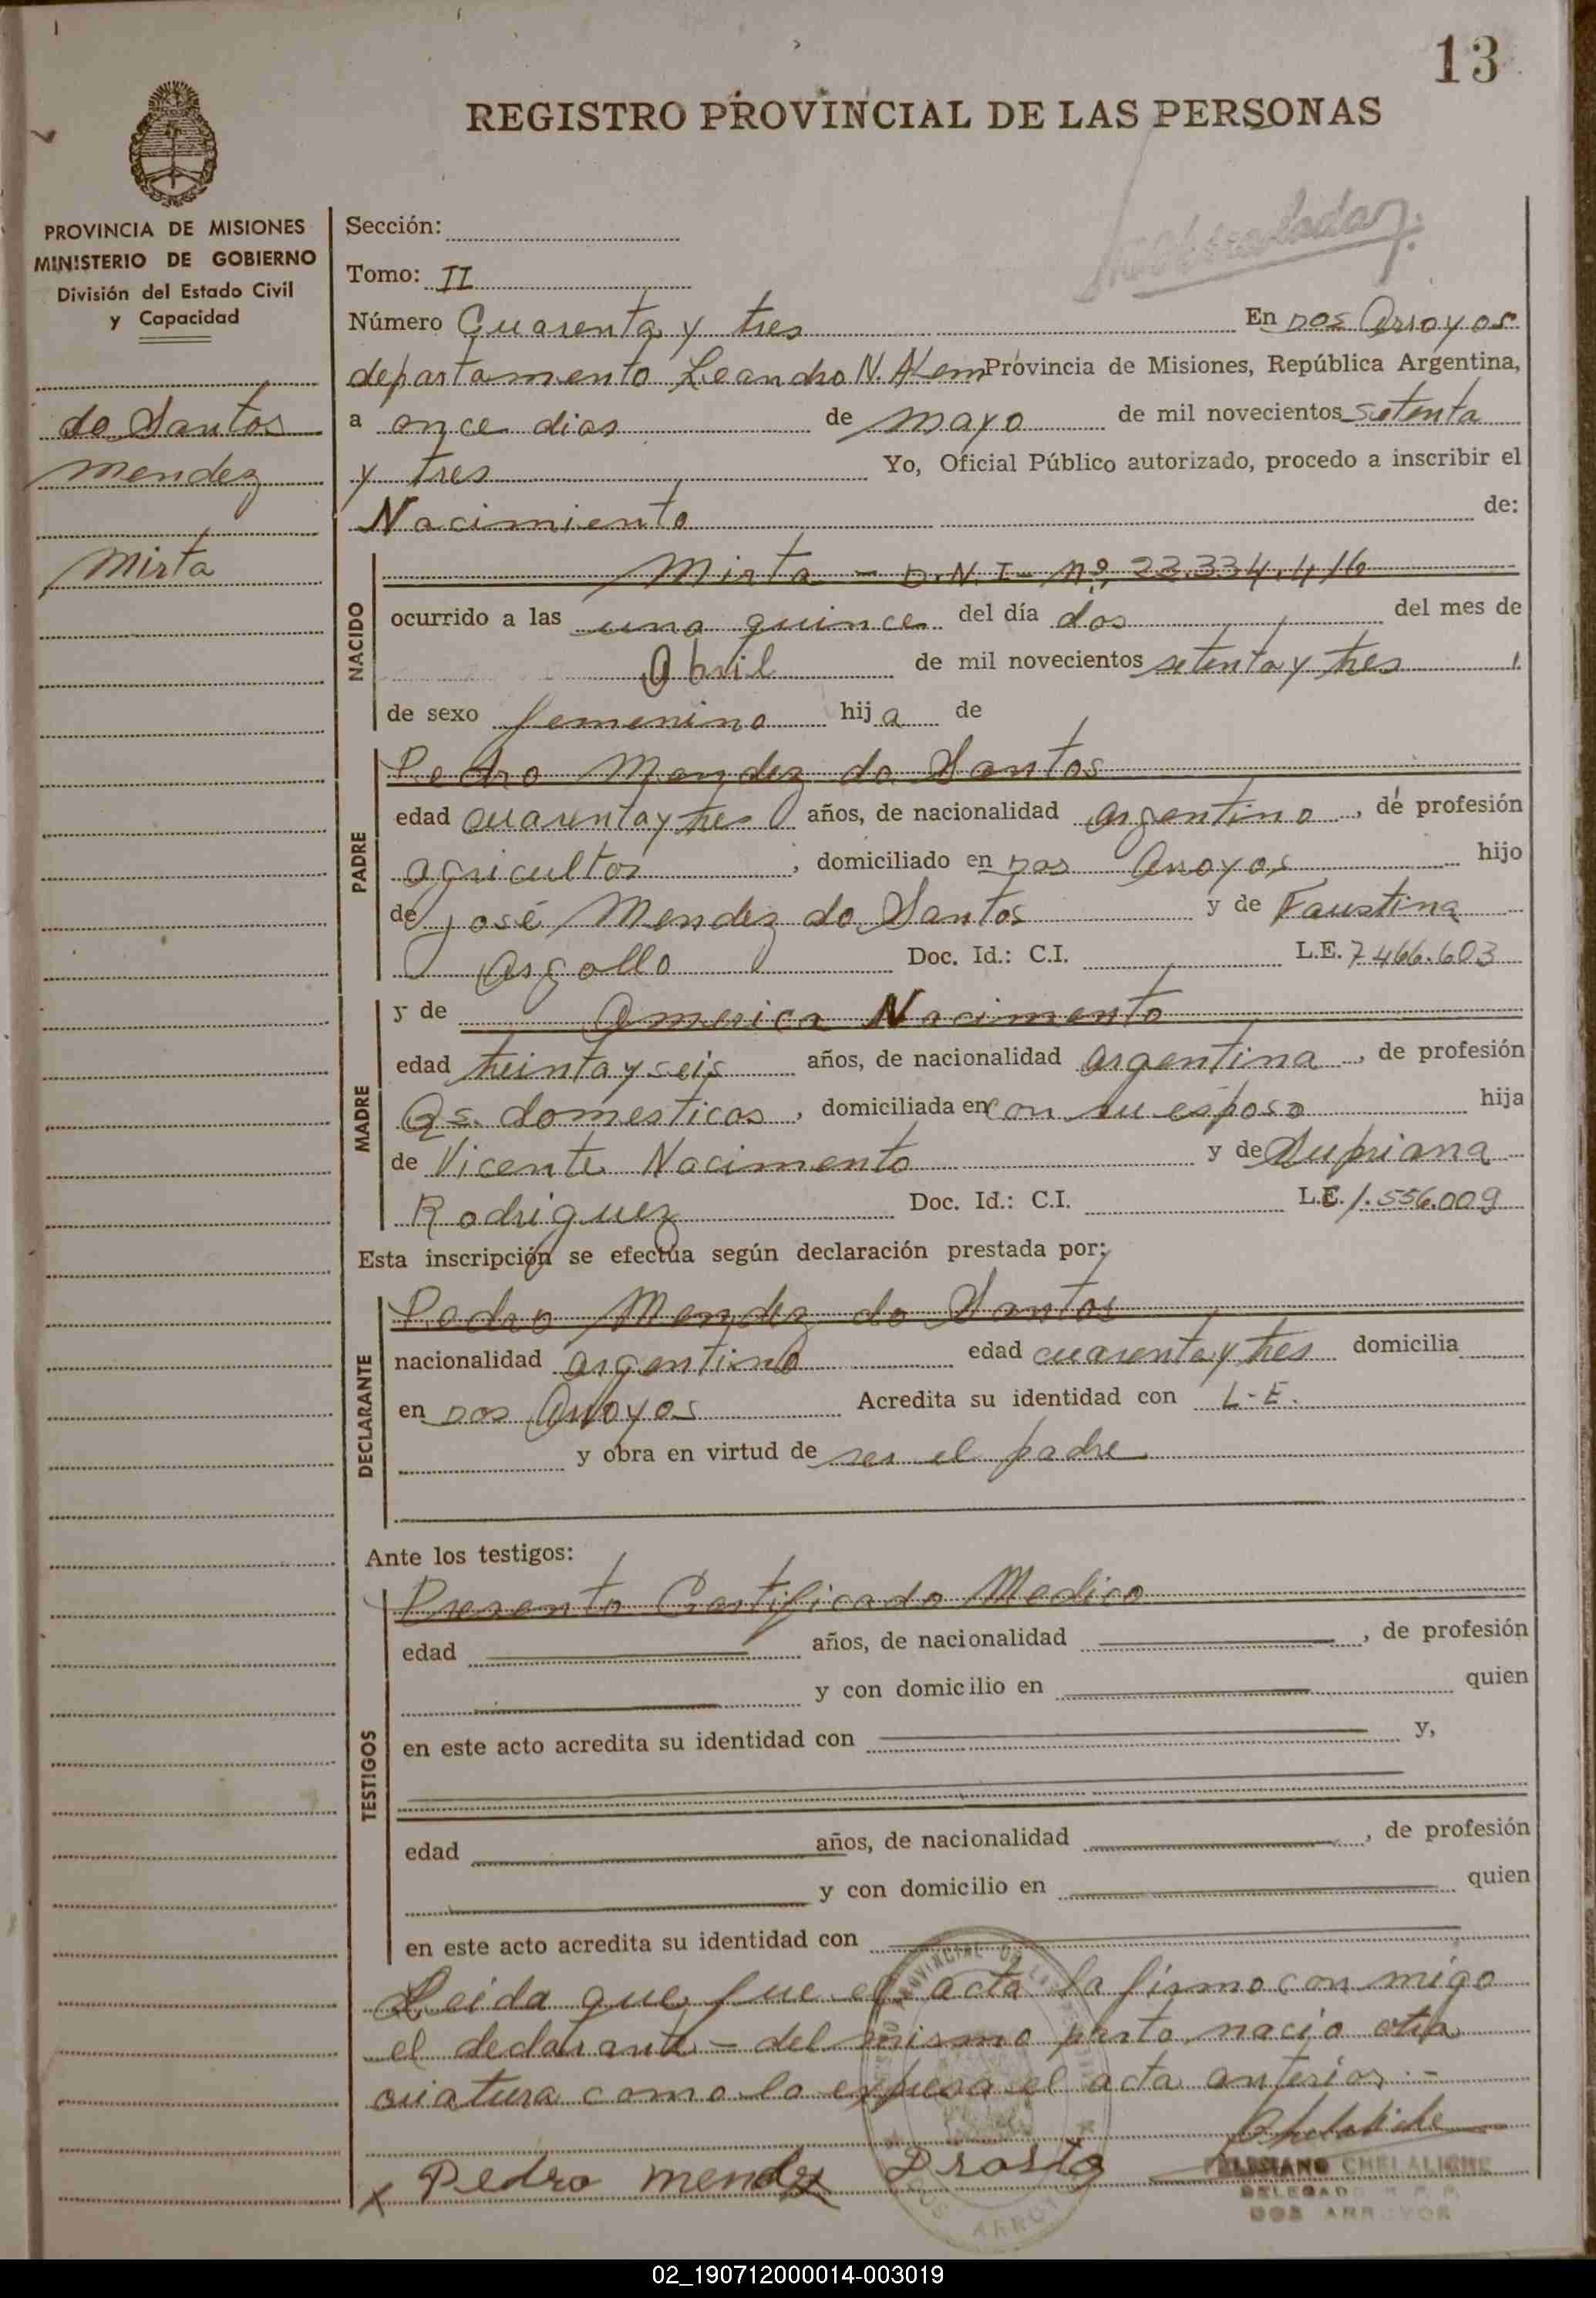 13
REGISTRO PROVINCIAL DE LAS PERSONAS
PROVINCIA DE MISIONES
MINISTERIO DE GOBIERNO
División del Estado Civil
y Capacidad
do Santos
Mendez
Mirta
Sección:
Tomo: II
Número Cuarenta y tres En Dos Arroyos
departamento Leandro N. Alem Provincia de Misiones, República Argentina,
a once dias de mayo de mil novecientos setenta
y tres Yo, Oficial Público autorizado, procedo a inscribir el
Nacimiento de:
NACIDO
Mirta - D.N.I- Nº 23.334.416
ocurrido a las una quince del día dos del mes de
Abril de mil novecientos setenta y tres
de sexo femenino hija de
PADRE
Pedro Mendez do Santos
edad cuarenta y tres años, de nacionalidad argentino, de profesión
agricultor, domiciliado en Dos Arroyos hijo
de José Mendez do Santos y de Faustina
Argollo Doc. Id.: C.I. L.E. 7.466.603
MADRE
y de America Nacimento
edad treinta y seis años, de nacionalidad argentina, de profesión
Qs. domesticos, domiciliada en con su esposo hija
de Vicente Nacimento y de Supriana
Rodriguez Doc. Id.: C.I. L.E. 1.556.009
Esta inscripción se efectúa según declaración prestada por:
DECLARANTE
Pedro Mendez do Santos
nacionalidad argentino edad cuarenta y tres domicilia
en Dos Arroyos Acredita su identidad con L-E.
y obra en virtud de ser el padre
Ante los testigos:
TESTIGOS
Presento Certificado Medico
edad años, de nacionalidad , de profesión
y con domicilio en quien
en este acto acredita su identidad con y,
edad años, de nacionalidad , de profesión
y con domicilio en quien
en este acto acredita su identidad con
Leida que fue el acta la firmo con migo
el declarante - del mismo parto nacio otra
criatura como lo expresa el acta anterior.-
x Pedro mendez
CHELALICHE
DELEGADO R. P. P.
DOS ARROYOS
02_190712000014-003019